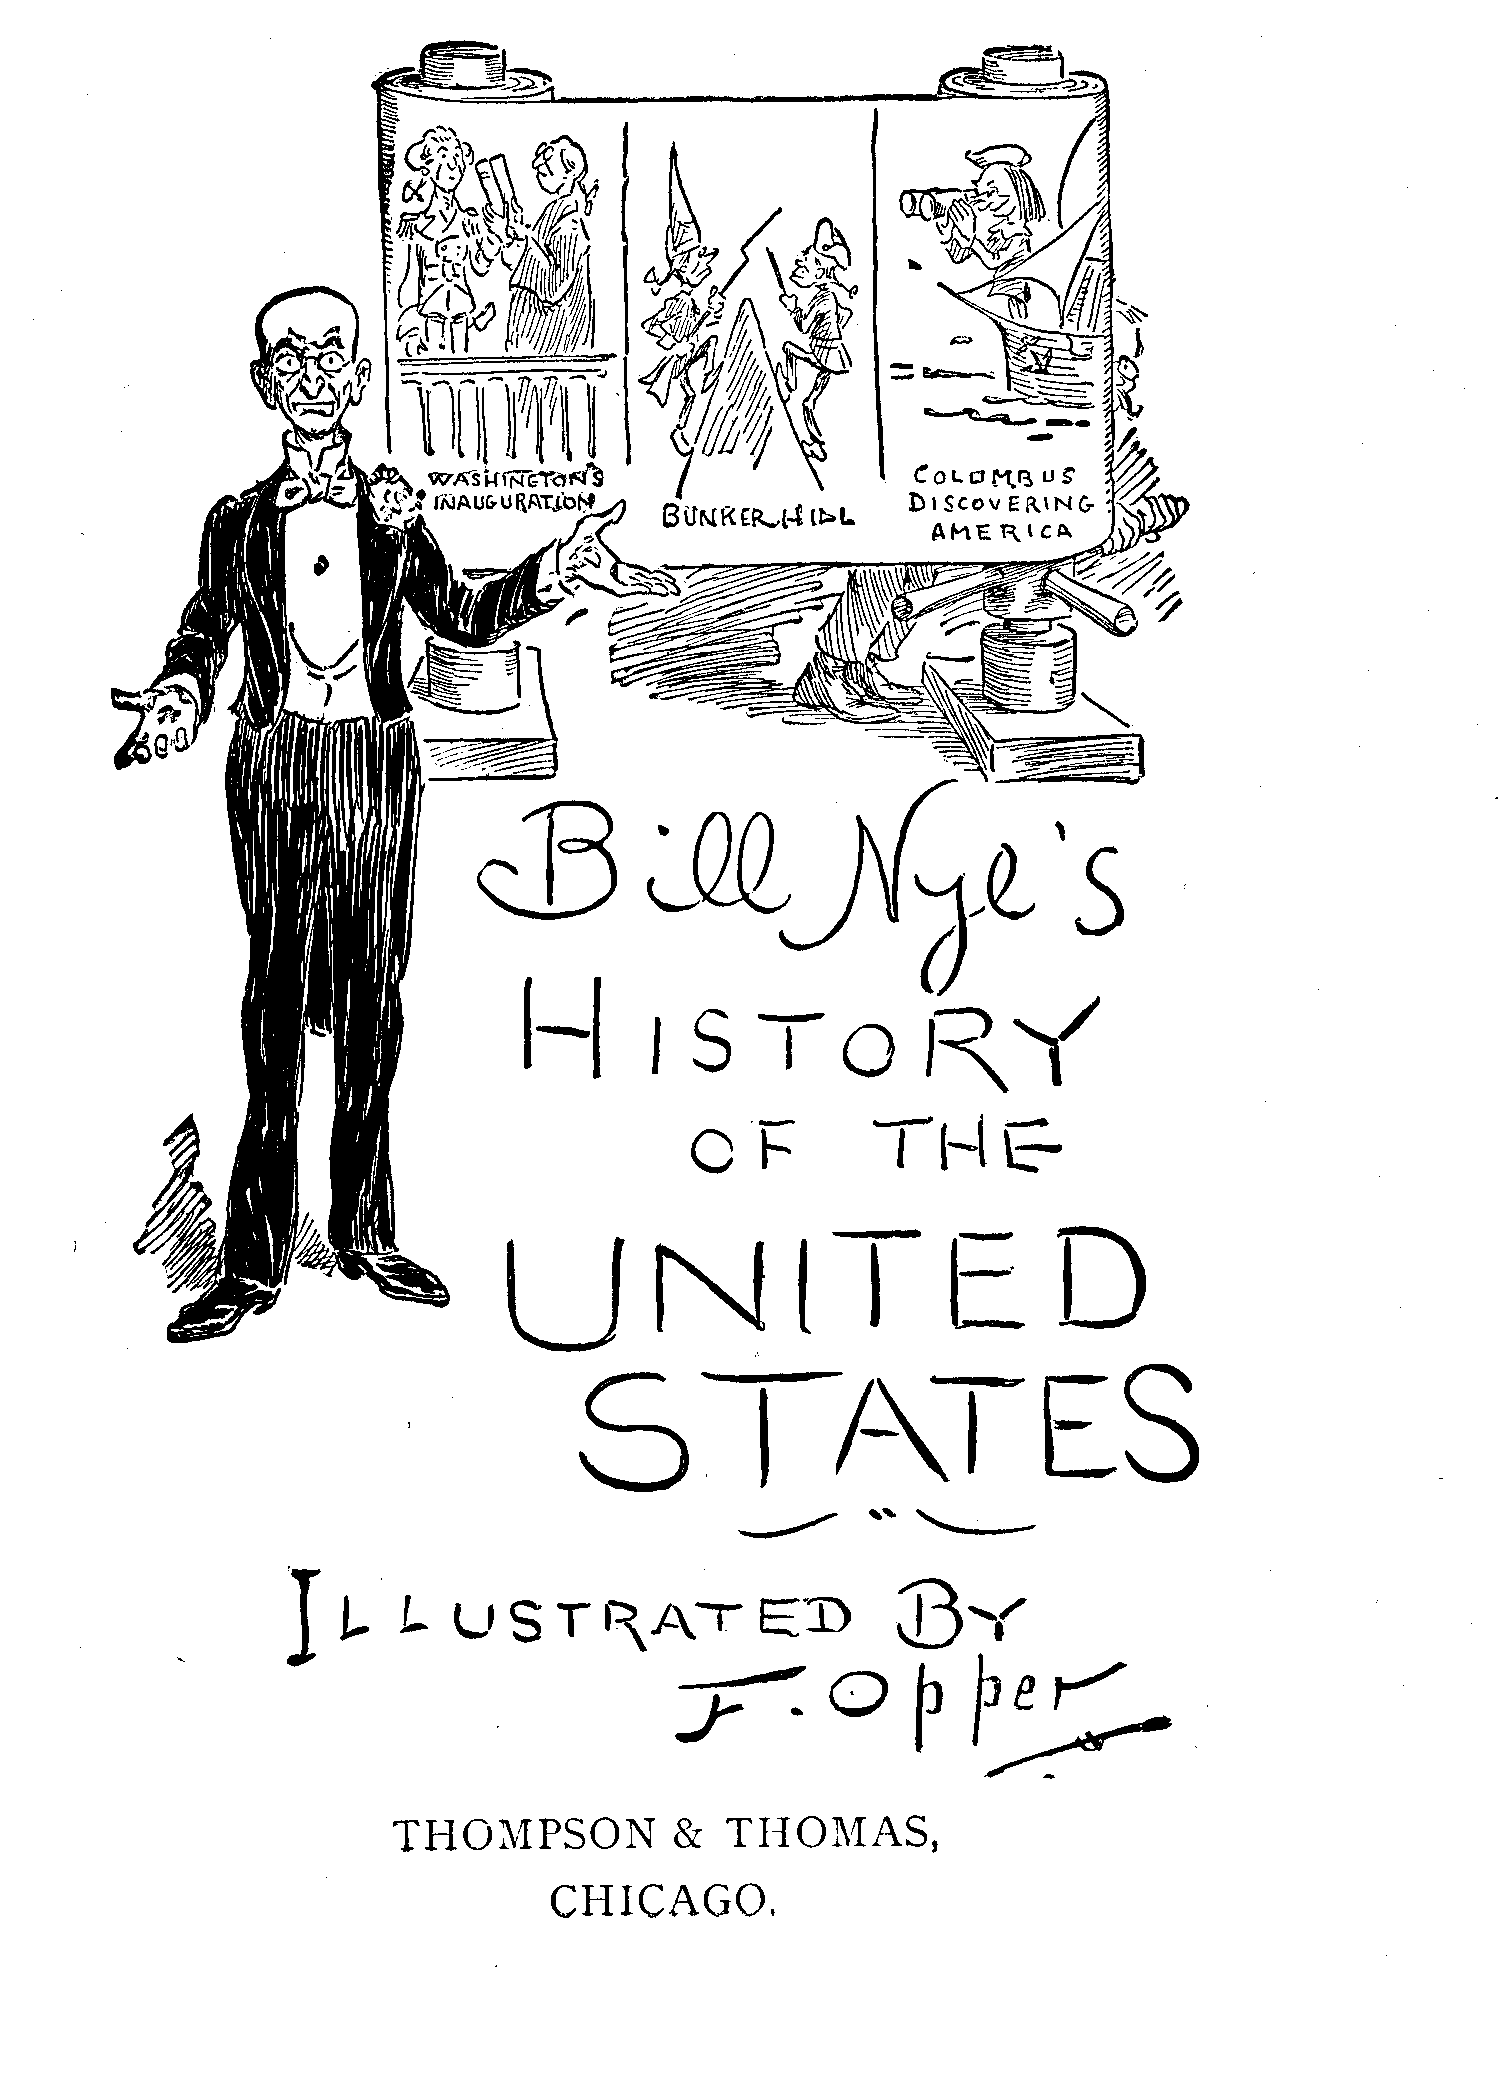 WASHINGTON'S
INAUGURATION
BUNKER HILL
COLUMBUS
DISCOVERING
AMERICA
Bill Nye's
HISTORY
OF THE
UNITED
STATES
ILLUSTRATED BY
F. Opper
THOMPSON & THOMAS,
CHICAGO.